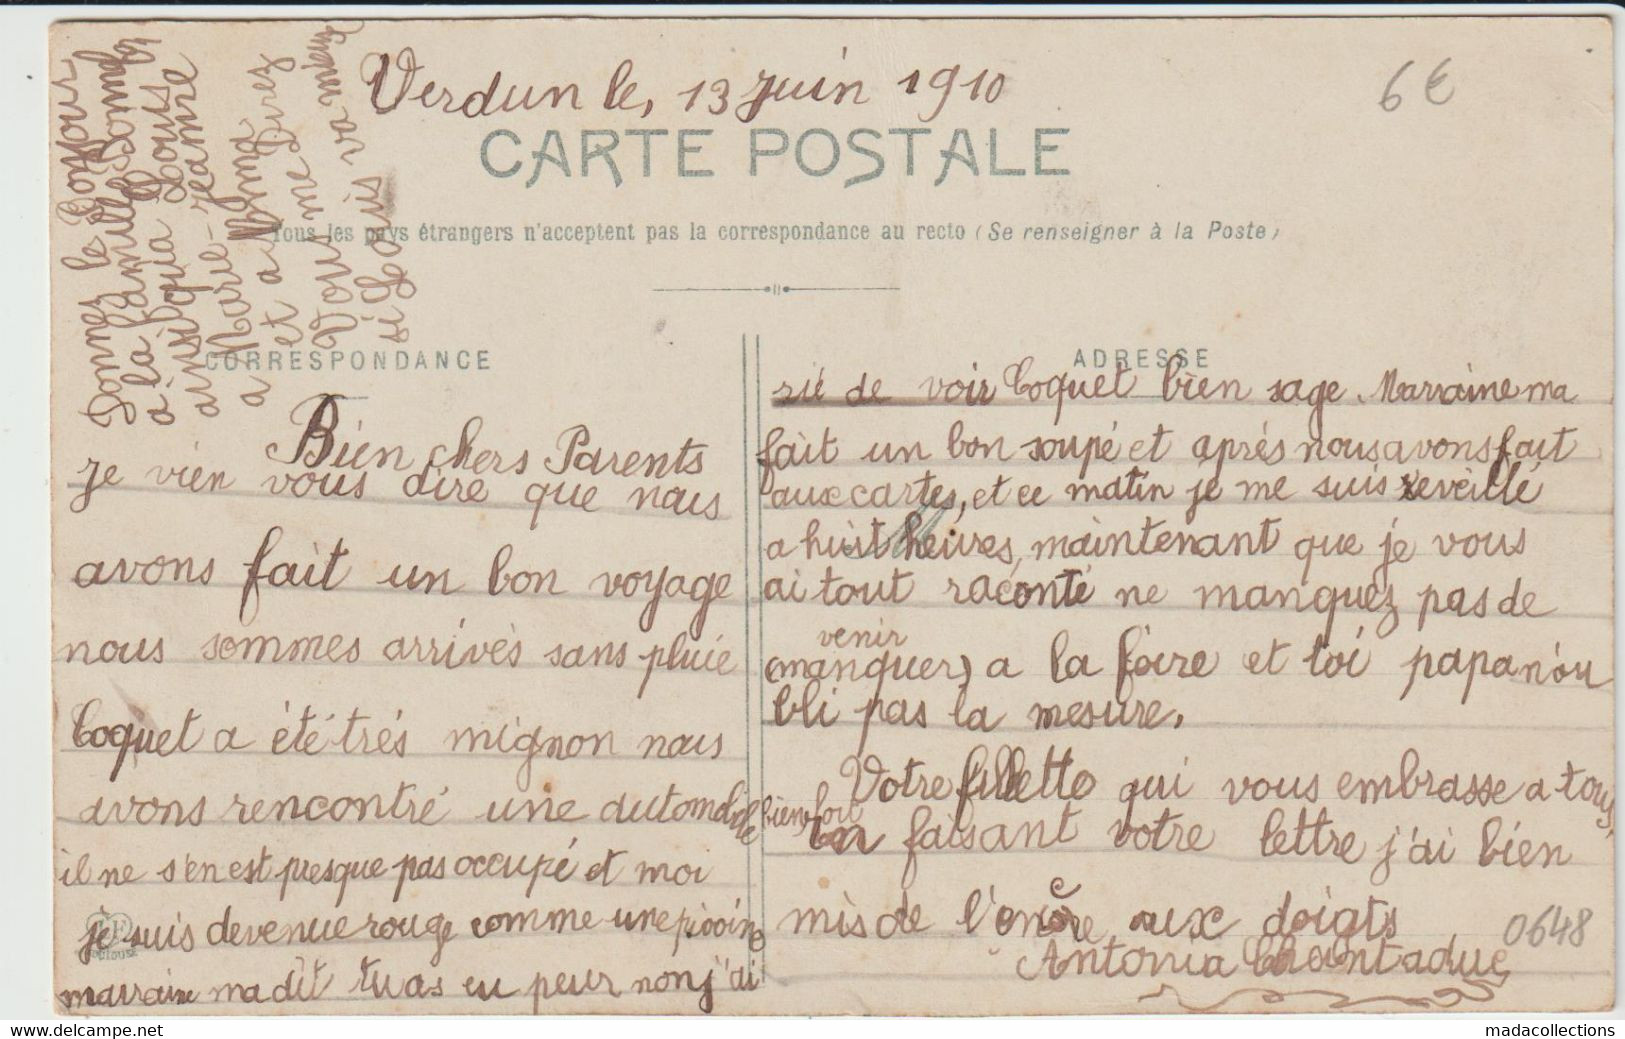 Verdun le, 13 Juin 1910
6€
CARTE POSTALE
Tous les pays étrangers n'acceptent pas la correspondance au recto (Se renseigner à la Poste)
Donnez le Bonjour
a la famille
ainsi qua Louis
Marie-Jeanne
a
et a Mme
Vous me Direz
si Louis va mieux
CORRESPONDANCE
Bien chers Parents
je vien vous dire que nous
avons fait un bon voyage
nous sommes arrivés sans pluie
Coquet a été trés mignon nous
avons rencontré une automobile
il ne s'en est presque pas occupé et moi
je suis devenue rouge comme une pivoine
marraine ma dit tu as eu peur non j'ai
ADRESSE
rit de voir Coquet bien sage. Marraine ma
fait un bon soupé et aprés nous avons fait
aux cartes, et ce matin je me suis reveillé
a huit heures, maintenant que je vous
ai tout raconté ne manquez pas de
venir
(manquer) a la foire et toi papa n'ou
bli pas la mesure.
Votre fillette qui vous embrasse a tous,
bien fou
En faisant votre lettre j'ai bien
mis de l'encre aux doigts
Antonia Chantaduc
0648
madacollections